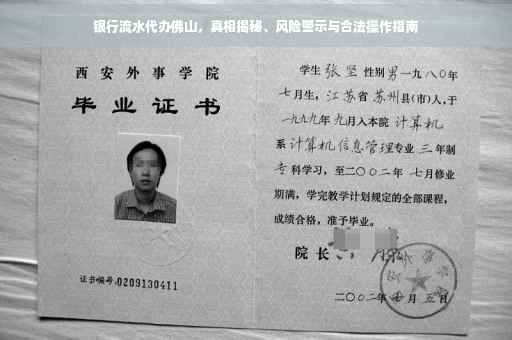 银行流水代办佛山，真相揭秘、风险警示与合法操作指南
西安外事学院
毕业证书
证书编号:0209130411
学生 张坚 性别 男 一九八〇年
七月生，江苏省 苏州县(市)人,于
一九九九年 九月入本院 计算机
系 计算机信息管理专业 三年制
专科学习，至二〇〇二年 七月修业
期满，学完教学计划规定的全部课程，
成绩合格，准予毕业。
院长
二〇〇二年 月 五日